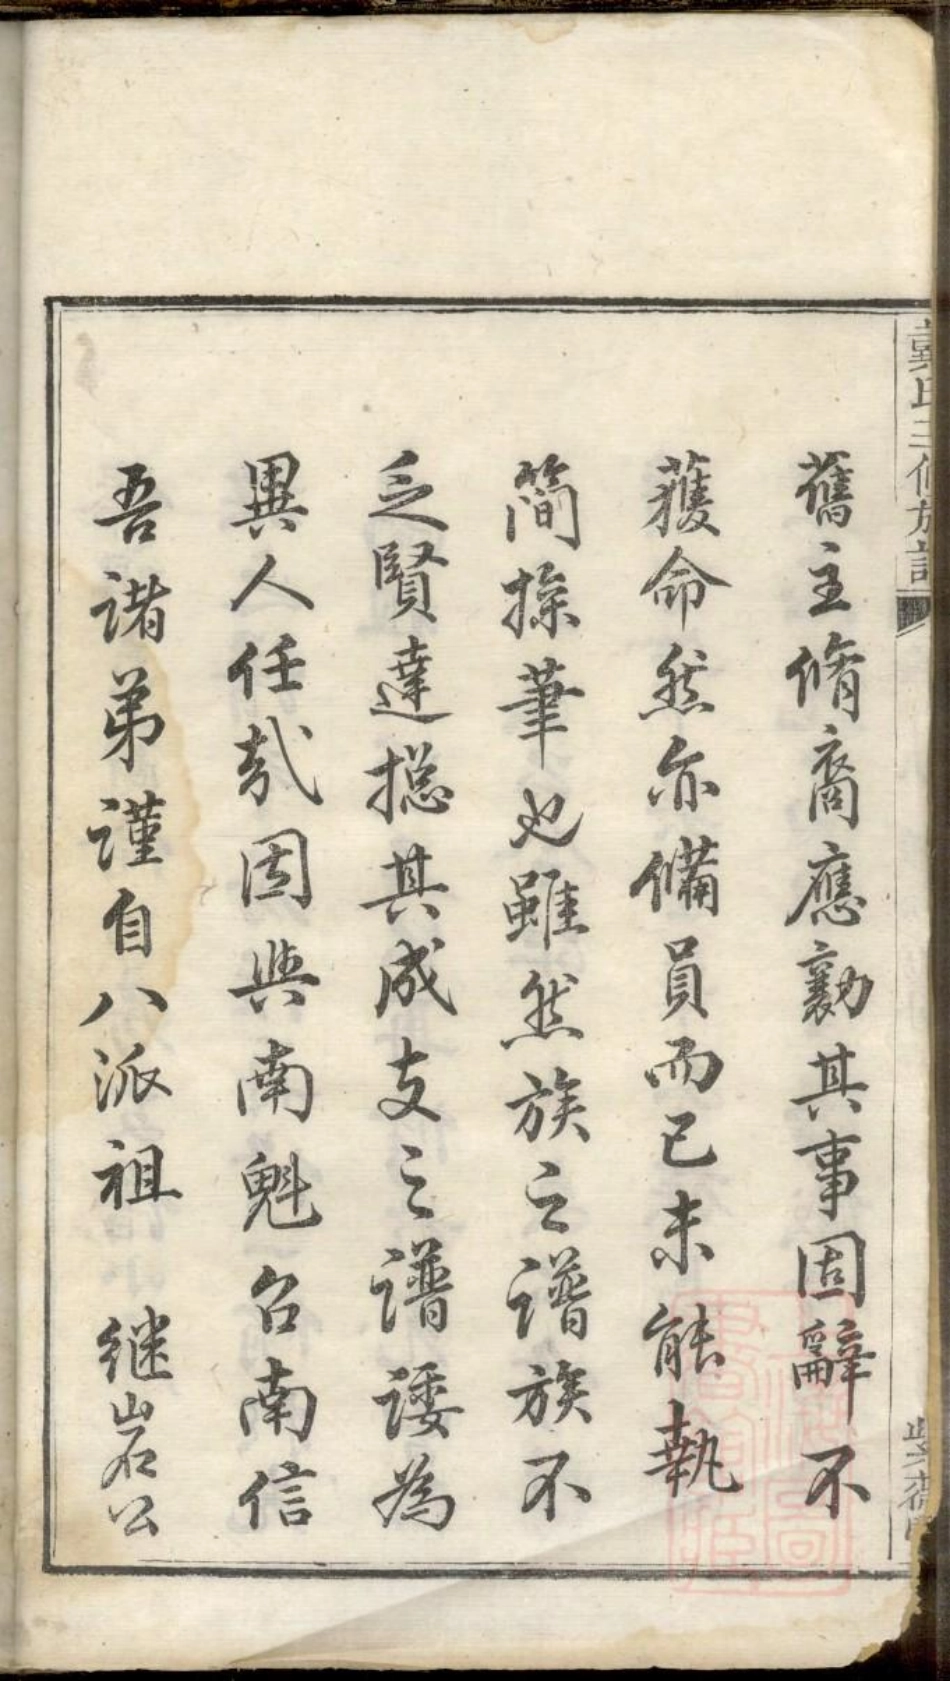 戴氏三修族譜
舊主脩裔應勷其事固辭不
獲命然亦備員而已未能執
簡操筆也雖然族之譜族不
乏賢達摠其成支之譜諉為
異人任哉因與南魁召南信
吾諸弟謹自八派祖 继岩公